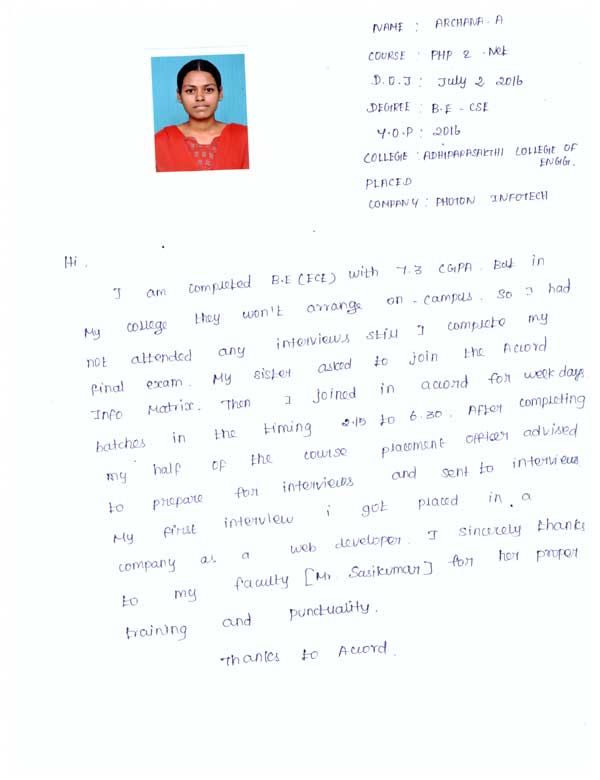 NAME : ARCHANA-A
COURSE : PHP & .Net
D.O.J : July 2 2016
DEGREE : B.E - CSE
Y.O.P : 2016
COLLEGE : ADHIPARASAKTHI COLLEGE OF
ENGG.
PLACED
COMPANY : PHOTON INFOTECH
Hi.
I am completed B.E (ECE) with 7.3 CGPA. But in
My college they won't arrange on-campus. So I had
not attended any interviews still I complete my
final exam. My sister asked to join the Accord
Info Matrix. Then I joined in accord for week days
batches in the timing 2.15 to 6.30. After completing
my half of the course placement officer advised
to prepare for interviews and sent to interview
My first interview i got placed in a
company as a web developer. I sincerely thanks
to my faculty [Mr. Sasikumar] for her proper
training and punctuality.
Thanks to Accord.